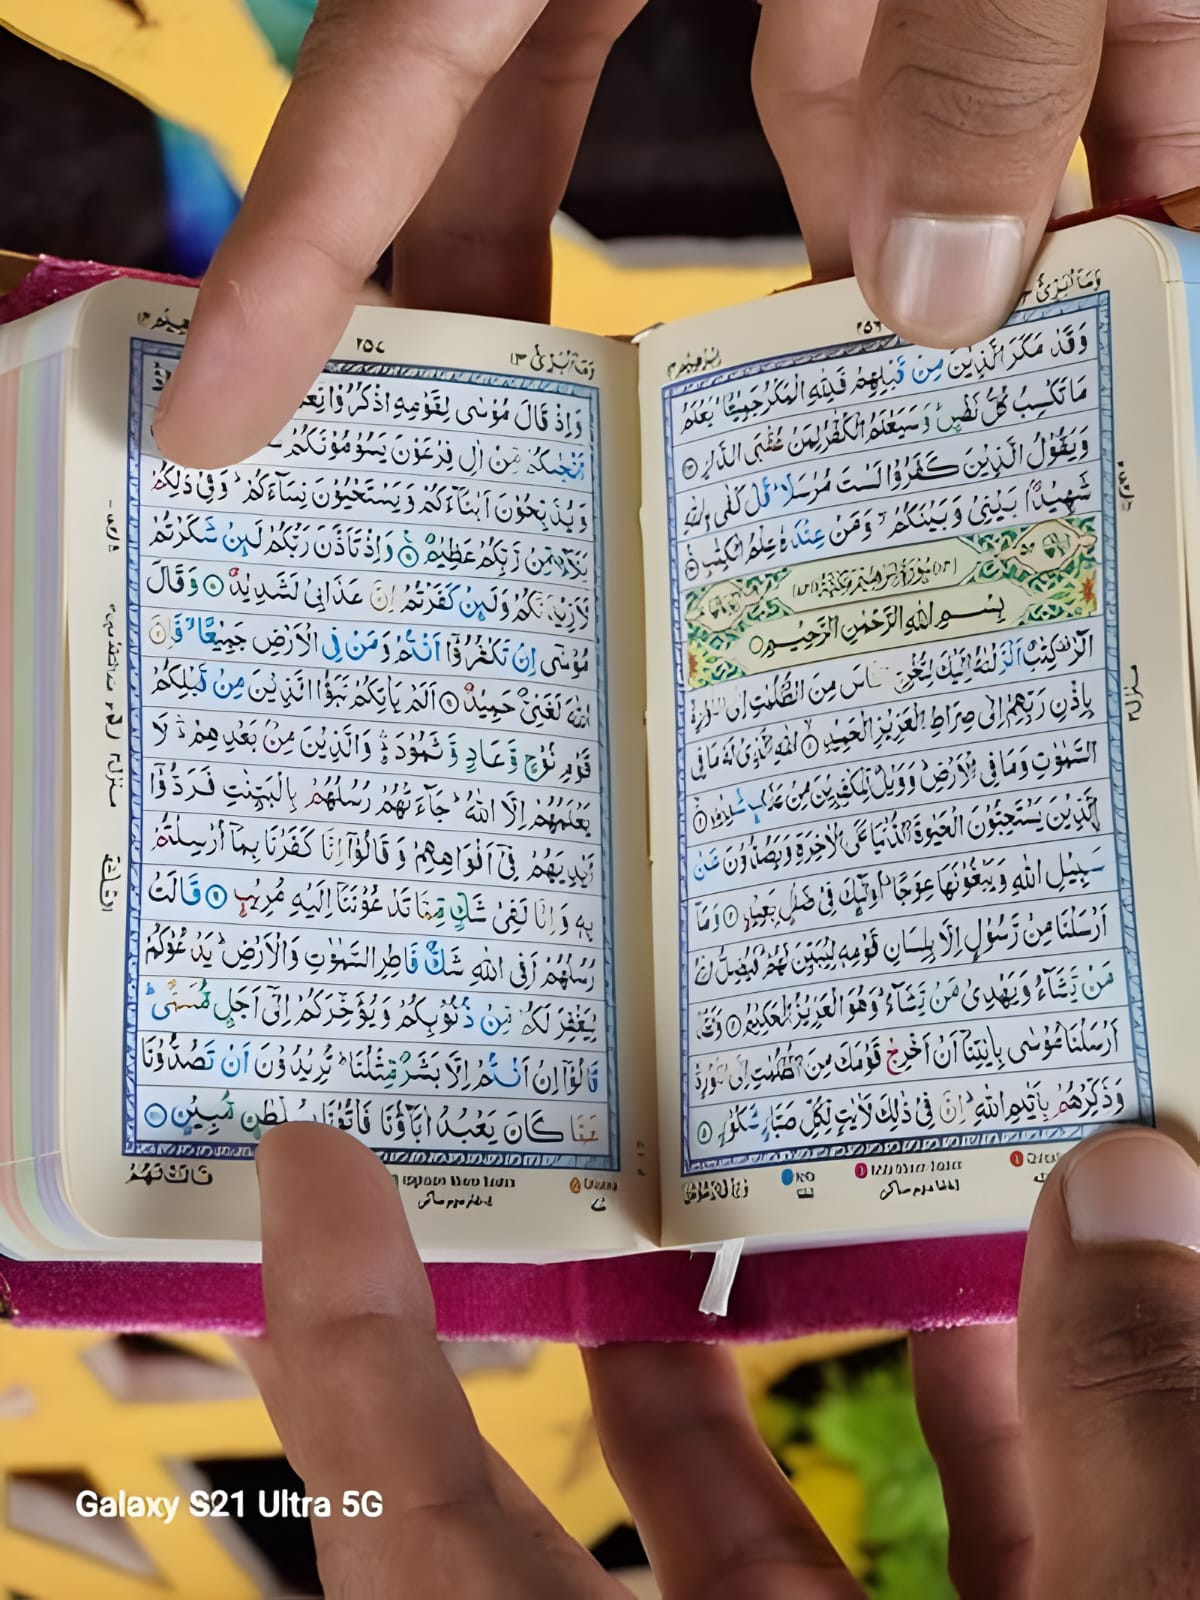 وَقَدْ مَكَرَ الَّذِيْنَ مِنْ قَبْلِهِمْ فَلِلّٰهِ الْمَكْرُ جَمِيْعًا ؕ يَعْلَمُ
مَا تَكْسِبُ كُلُّ نَفْسٍ ؕ وَسَيَعْلَمُ الْكُفّٰرُ لِمَنْ عُقْبَى الدَّارِ
وَيَقُوْلُ الَّذِيْنَ كَفَرُوْا لَسْتَ مُرْسَلًا ؕ قُلْ كَفٰى بِاللّٰهِ
شَهِيْدًۢا بَيْنِيْ وَبَيْنَكُمْ ۙ وَمَنْ عِنْدَهٗ عِلْمُ الْكِتٰبِ
بِسْمِ اللّٰهِ الرَّحْمٰنِ الرَّحِيْمِ
الٓرٰ ۟ كِتٰبٌ اَنْزَلْنٰهُ اِلَيْكَ لِتُخْرِجَ النَّاسَ مِنَ الظُّلُمٰتِ اِلَى النُّوْرِ ۙ۬
بِاِذْنِ رَبِّهِمْ اِلٰى صِرَاطِ الْعَزِيْزِ الْحَمِيْدِ ۙ اللّٰهِ الَّذِيْ لَهٗ مَا فِي
السَّمٰوٰتِ وَمَا فِي الْاَرْضِ ؕ وَوَيْلٌ لِّلْكٰفِرِيْنَ مِنْ عَذَابٍ شَدِيْدِ
الَّذِيْنَ يَسْتَحِبُّوْنَ الْحَيٰوةَ الدُّنْيَا عَلَى الْاٰخِرَةِ وَيَصُدُّوْنَ عَنْ
سَبِيْلِ اللّٰهِ وَيَبْغُوْنَهَا عِوَجًا ؕ اُولٰٓئِكَ فِيْ ضَلٰلٍۭ بَعِيْدٍ وَمَآ
اَرْسَلْنَا مِنْ رَّسُوْلٍ اِلَّا بِلِسَانِ قَوْمِهٖ لِيُبَيِّنَ لَهُمْ ؕ فَيُضِلُّ اللّٰهُ
مَنْ يَّشَآءُ وَيَهْدِيْ مَنْ يَّشَآءُ ؕ وَهُوَ الْعَزِيْزُ الْحَكِيْمُ وَلَقَدْ
اَرْسَلْنَا مُوْسٰى بِاٰيٰتِنَآ اَنْ اَخْرِجْ قَوْمَكَ مِنَ الظُّلُمٰتِ اِلَى النُّوْرِ
وَذَكِّرْهُمْ بِاَيّٰىمِ اللّٰهِ ؕ اِنَّ فِيْ ذٰلِكَ لَاٰيٰتٍ لِّكُلِّ صَبَّارٍ شَكُوْرٍ
٢٥٧
وَاِذْ قَالَ مُوْسٰى لِقَوْمِهِ اذْكُرُوْا
اَنْجٰىكُمْ مِّنْ اٰلِ فِرْعَوْنَ يَسُوْمُوْنَكُمْ
وَيُذَبِّحُوْنَ اَبْنَآءَكُمْ وَيَسْتَحْيُوْنَ نِسَآءَكُمْ ؕ وَفِيْ ذٰلِكُمْ
بَلَآءٌ مِّنْ رَّبِّكُمْ عَظِيْمٌ وَاِذْ تَاَذَّنَ رَبُّكُمْ لَئِنْ شَكَرْتُمْ
لَاَزِيْدَنَّكُمْ وَلَئِنْ كَفَرْتُمْ اِنَّ عَذَابِيْ لَشَدِيْدٌ وَقَالَ
مُوْسٰٓى اِنْ تَكْفُرُوْٓا اَنْتُمْ وَمَنْ فِي الْاَرْضِ جَمِيْعًا ۙ فَاِنَّ
اللّٰهَ لَغَنِيٌّ حَمِيْدٌ اَلَمْ يَاْتِكُمْ نَبَؤُا الَّذِيْنَ مِنْ قَبْلِكُمْ
قَوْمِ نُوْحٍ وَّعَادٍ وَّثَمُوْدَ ۛؕ وَالَّذِيْنَ مِنْۢ بَعْدِهِمْ ۛؕ لَا
يَعْلَمُهُمْ اِلَّا اللّٰهُ ؕ جَآءَتْهُمْ رُسُلُهُمْ بِالْبَيِّنٰتِ فَرَدُّوْٓا
اَيْدِيَهُمْ فِيْٓ اَفْوَاهِهِمْ وَقَالُوْٓا اِنَّا كَفَرْنَا بِمَآ اُرْسِلْتُمْ
بِهٖ وَاِنَّا لَفِيْ شَكٍّ مِّمَّا تَدْعُوْنَنَآ اِلَيْهِ مُرِيْبٍ قَالَتْ
رُسُلُهُمْ اَفِي اللّٰهِ شَكٌّ فَاطِرِ السَّمٰوٰتِ وَالْاَرْضِ ؕ يَدْعُوْكُمْ
لِيَغْفِرَ لَكُمْ مِّنْ ذُنُوْبِكُمْ وَيُؤَخِّرَكُمْ اِلٰٓى اَجَلٍ مُّسَمًّى ؕ
قَالُوْٓا اِنْ اَنْتُمْ اِلَّا بَشَرٌ مِّثْلُنَا ؕ تُرِيْدُوْنَ اَنْ تَصُدُّوْنَا
عَمَّا كَانَ يَعْبُدُ اٰبَآؤُنَا فَاْتُوْنَا بِسُلْطٰنٍ مُّبِيْنٍ
Galaxy S21 Ultra 5G